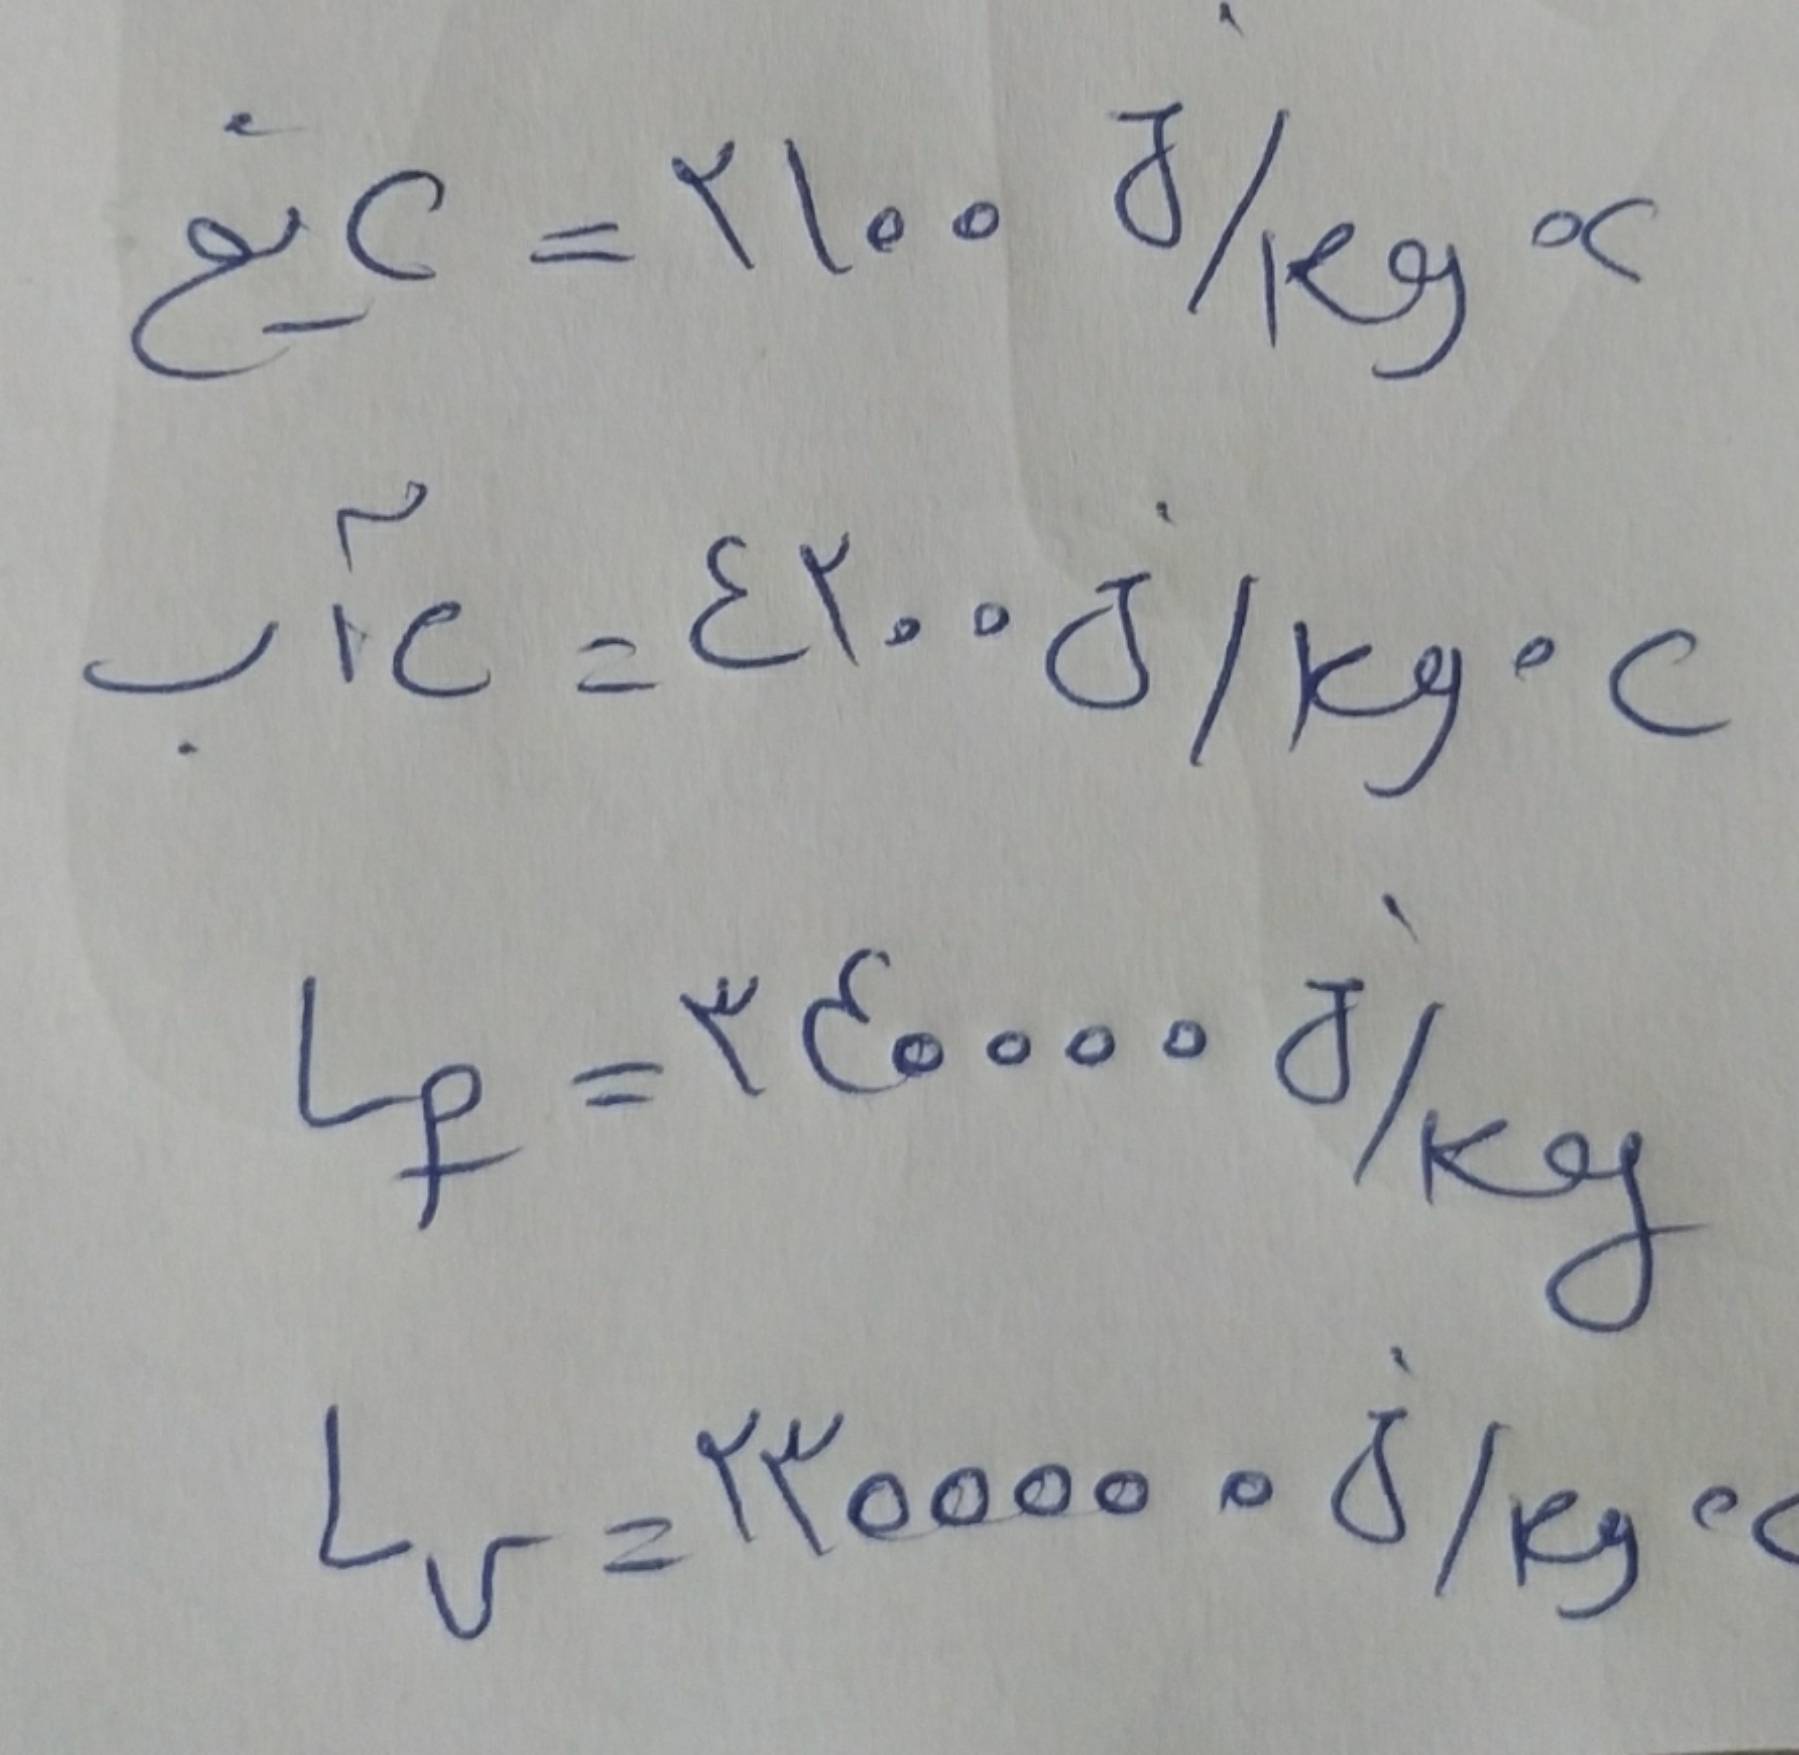 C یخ = ۲۱۰۰ J/kg °C
C آب = ٤۲۰۰ J/kg °C
Lf = ۳٤۰۰۰۰ J/kg
Lv = ۲۳۰۰۰۰۰ J/kg °C